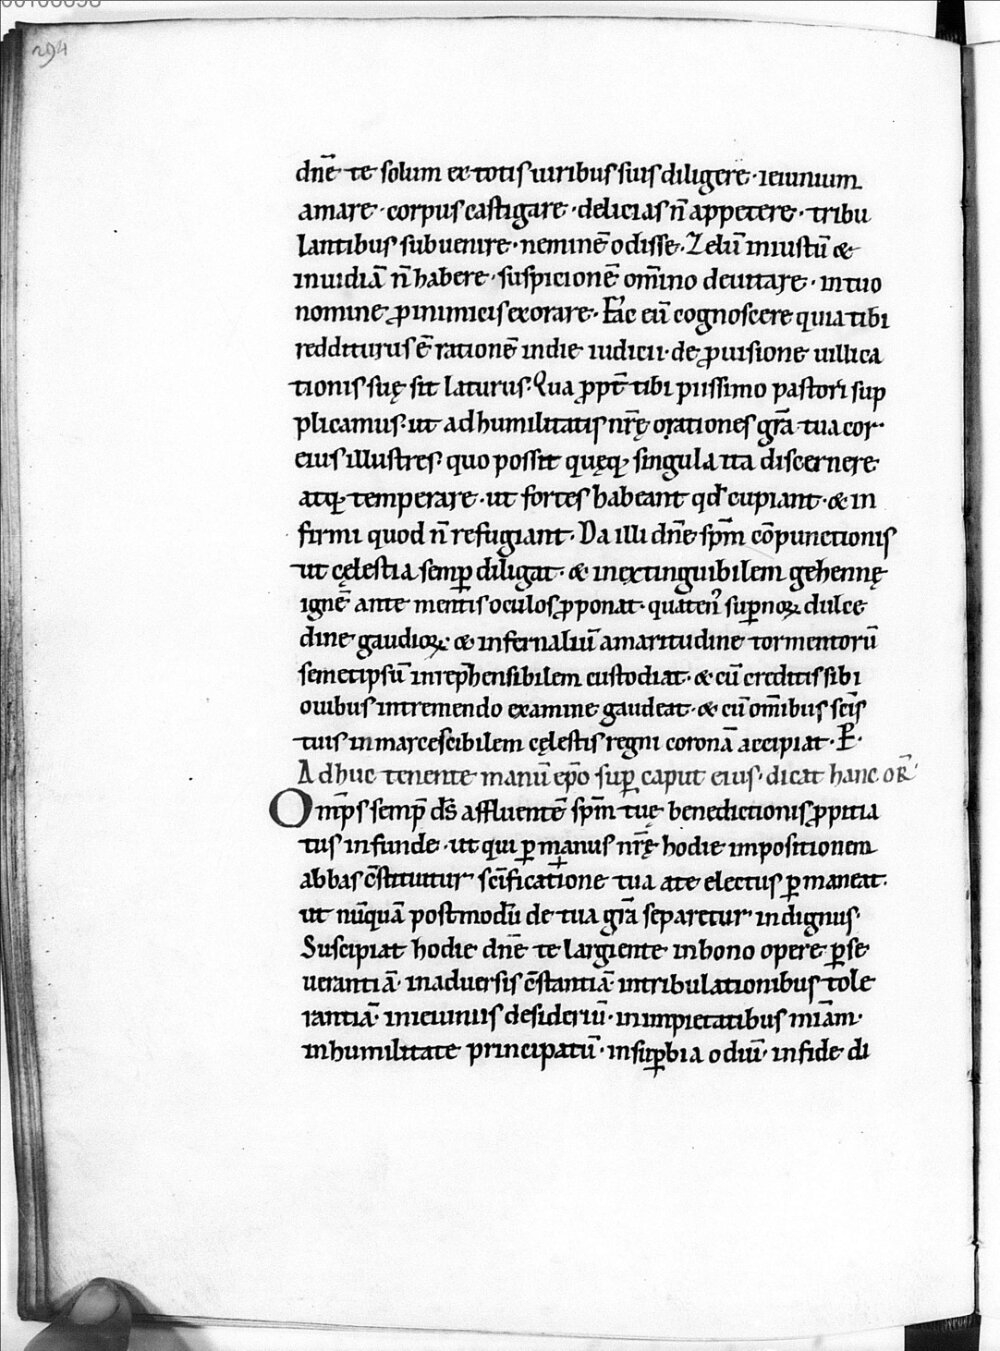 294
dn̄e te solum ex totis uiribus suis diligere · ieiunium
amare · corpus castigare · delicias n̄ appetere · tribu
lantibus subuenire · neminē odisse · Zelū iniustū &
inuidiā n̄ habere · suspicionē om̄ino deuitare · in tuo
nomine ꝓ inimicis exorare · Fac eū cognoscere quia tibi
redditurus ē rationē in die iudicii · de ꝓuisione uillica
tionis suę sit laturus · Qua ꝓpt̄ tibi piissimo pastori sup
plicamus · ut ad humilitatis nr̄ę orationes gr̄a tua cor
eius illustres · quo possit quęq; singula ita discernere
atq; temperare · ut fortes habeant qd̄ cupiant · & in
firmi quod n̄ refugiant · Da illi dn̄e sp̄m cōpunctionis
ut cęlestia semꝑ diligat · & inextinguibilem gehennę
ignē ante mentis oculos ꝓponat · quaten᾿ suꝑnoꝝ dulce
dine gaudioꝝ · & infernaliū amaritudine tormentorū
semetipsū inrep̄hensibilem custodiat · & cū creditis sibi
ouibus in tremendo examine gaudeat · & cū om̄ibus sc̄is
tuis inmarcescibilem cęlestis regni coronā accipiat · P̄ ·
Adhuc tenente manū ep̄o suꝑ caput eius · dicat hanc or̄
Om̄ps semp̄ ds̄ affluentē sp̄m tuę benedictionis ꝓpitia
tus infunde · ut qui ꝑ manus nr̄ę hodie impositionem
abbas c̄stituitur sc̄ificatione tua a te electus ꝑmaneat ·
ut nūquā postmodū de tua gr̄a separetur indignus ·
Suscipiat hodie dn̄e te largiente in bono opere ꝑse
uerantiā · in aduersis c̄stantiā · in tribulationibus tole
rantiā · in ieiuniis desideriū · in impietatibus mīam ·
in humilitate principatū · in suꝑbia odiū · in fide di